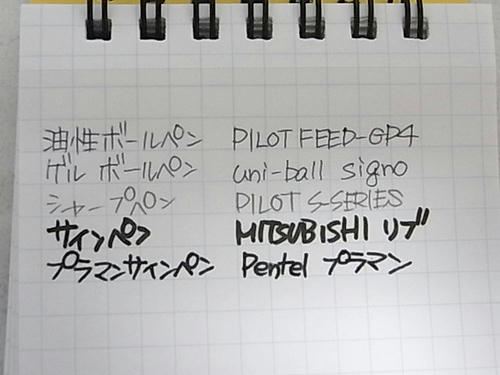 油性ボールペン PILOT FEED-GP4
ゲルボールペン uni-ball signo
シャープペン PILOT S-SERIES
サインペン MITSUBISHI リブ
プラマンサインペン Pentel プラマン